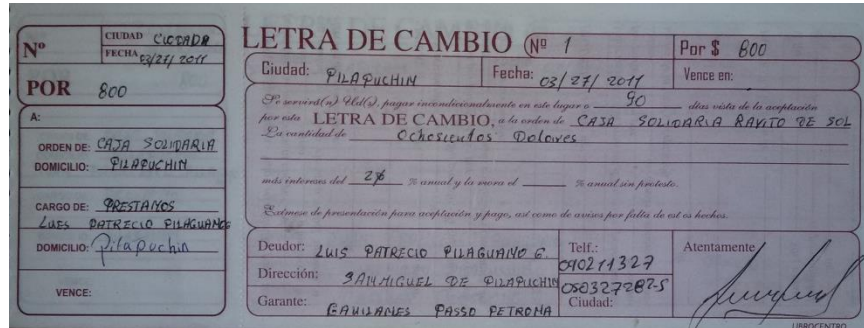 Nº
CIUDAD CIUDADA
FECHA 03/27/2011
POR 800
A:
ORDEN DE: CAJA SOLIDARIA
DOMICILIO: PILAPUCHIN
CARGO DE: PRESTAMOS
LUIS PATRECIO PILAGUANO
DOMICILIO: Pilapuchin
VENCE:
LETRA DE CAMBIO Nº 1 Por $ 800
Ciudad: PILAPUCHIN Fecha: 03/27/2011 Vence en:
Se servirá(n) Ud(s), pagar incondicionalmente en este lugar o 90 días vista de la aceptación
por esta LETRA DE CAMBIO, a la orden de CASA SOLIDARIA RAYITO DE SOL
La cantidad de Ochocientos Dolares
más intereses del 2% % anual y la mora el % anual sin protesto.
Exímese de presentación para aceptación y pago, así como de avisos por falta de estos hechos.
Deudor: LUIS PATRECIO PILAGUANO G. Telf.: 090211327
Atentamente
Dirección: SAN MIGUEL DE PILAPUCHIN 050327287-5
Garante: GAVILANES PASSO PETRONA Ciudad:
LIBROCENTRO